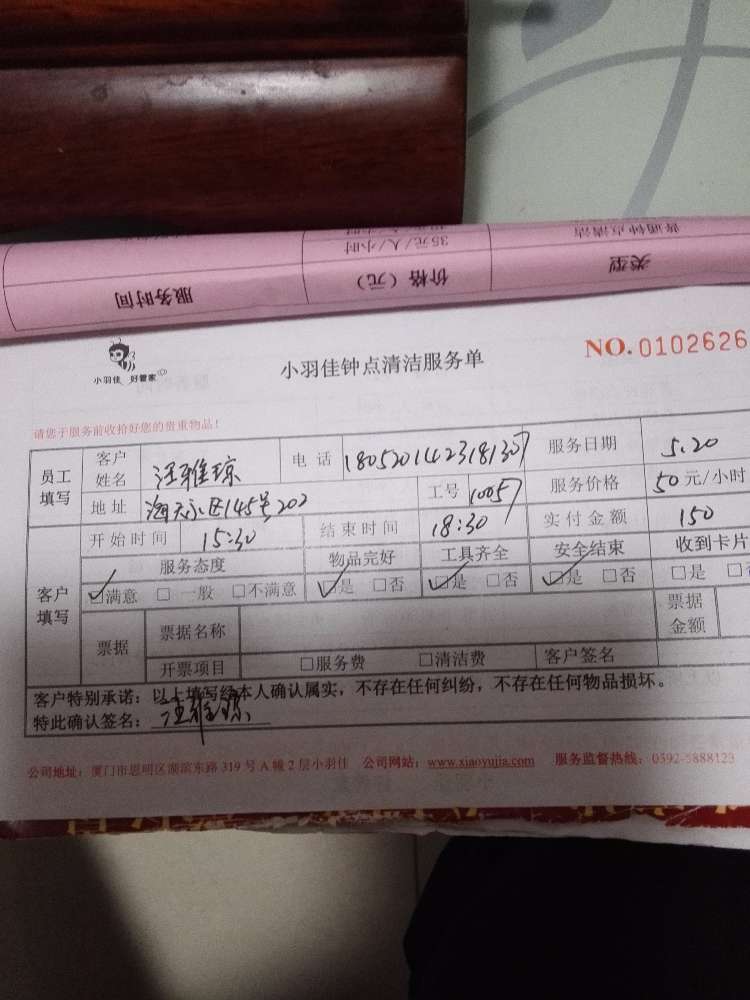 类型 价格（元） 服务时间
普通钟点清洁 35元/人/小时
小羽佳 好管家
小羽佳钟点清洁服务单
NO. 0102626
请您于服务前收拾好您的贵重物品！
员工填写 客户姓名 汪雅琼 电话 服务日期 5.20
地址 工号 10057 服务价格 50元/小时
客户填写 开始时间 15:30 结束时间 18:30 实付金额 150
服务态度 物品完好 工具齐全 安全结束 收到卡片
☑满意 □一般 □不满意 ☑是 □否 ☑是 □否 ☑是 □否 □是 □否
票据 票据名称 票据金额
开票项目 □服务费 □清洁费 客户签名
客户特别承诺：以上填写经本人确认属实，不存在任何纠纷，不存在任何物品损坏。
特此确认签名：汪雅琼
公司地址：厦门市思明区湖滨东路319号A幢2层小羽佳 公司网站：www.xiaoyujia.com 服务监督热线：0592-5888123